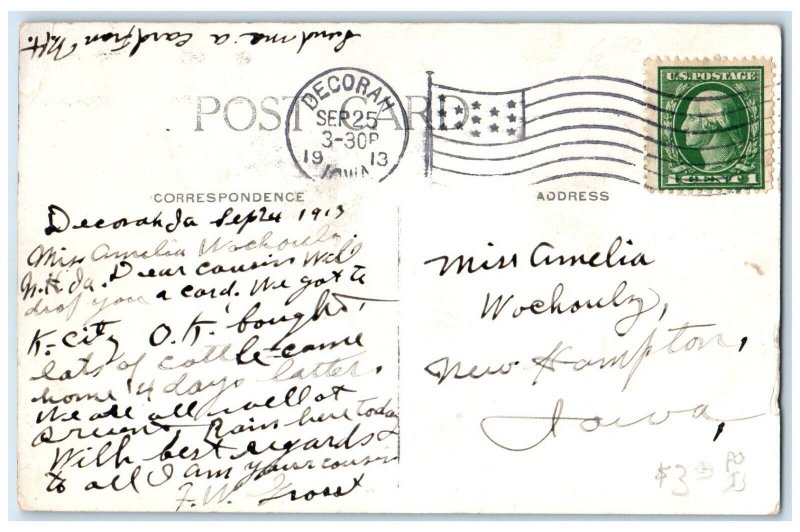 Send me a card from N.H.
POST CARD
DECORAH
SEP 25
3-30P
1913
IOWA
U.S. POSTAGE
1 CENT 1
CORRESPONDENCE
Decorah Ia Sept 24 1913
Miss Amelia Wochouly.
N.H. Ia. Dear cousin Will
drop you a card. We got to
K-city O.K. bought
lots of cattle came
home 4 days latter,
We are all well at
Present, Rain here today
With best regards
to all I am your cousin
F. W. Gross
ADDRESS
Miss Amelia
Wochouly,
New Hampton,
Iowa,
$3.00